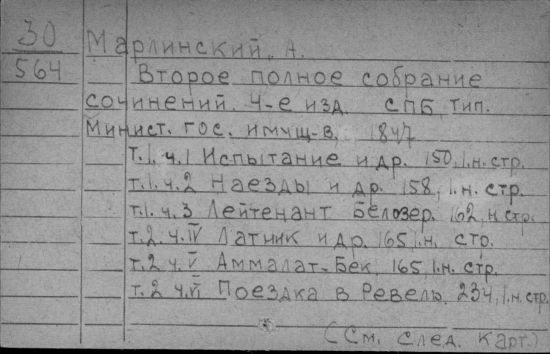 30 Марлинский, А.
564 Второе полное собрание
сочинений. 4-е изд. СПБ, Тип.
Минист. гос. имущ-в, 1847
т.1.ч.1 Испытание и др. 150, 1.н. стр.
т.1.ч.2 Наезды и др. 158, 1.н. стр.
т.1.ч.3 Лейтенант Белозер. 162, н стр.
т.2.ч.IV Латник и др. 165 1.н. стр.
т.2 ч.V Аммалат-Бек, 165 1.н. стр.
т.2 ч.VI Поездка в Ревель, 234, 1.н. стр
(См. след. карт.)